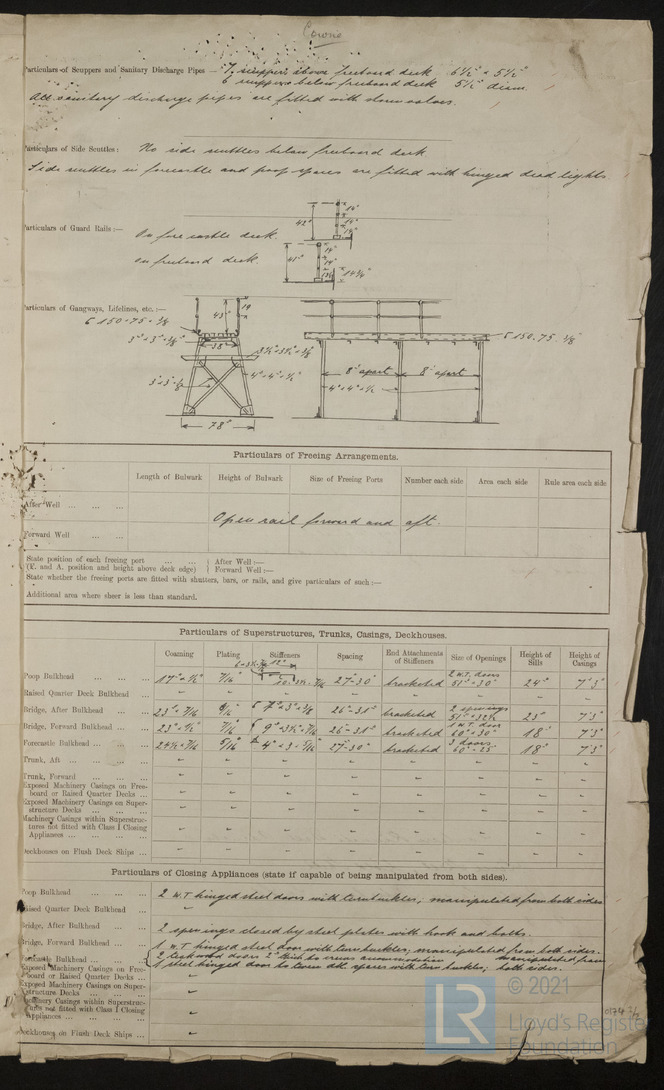 Particulars of Scuppers and Sanitary Discharge Pipes — 7 scuppers above freeboard deck 6½" × 5½"
6 scuppers below freeboard deck 5½" diam.
All sanitary discharge pipes are fitted with storm valves.
Particulars of Side Scuttles:— No side scuttles below freeboard deck
Side scuttles in forecastle and poop spaces are fitted with hinged dead lights
Particulars of Guard Rails:— On forecastle deck. 42" 14" 14" 14"
on freeboard deck. 45" 14" 14" 14¾"
Particulars of Gangways, Lifelines, etc.:—
43" 19
[ 150 × 75 × 3/8
3" × 3" × 3/8" 38" 3½" × 3½" × 3/8
3 × 3 × 4" × 4" × ½"
78"
[ 150 . 75 . 3/8"
8' apart 8' apart
4" × 4" × ½
Particulars of Freeing Arrangements.
Length of Bulwark Height of Bulwark Size of Freeing Ports Number each side Area each side Rule area each side
After Well ... ... ...
Open rail forward and aft.
Forward Well ... ...
State position of each freeing port ... ... } After Well :—
(F. and A. position and height above deck edge) } Forward Well :—
State whether the freeing ports are fitted with shutters, bars, or rails, and give particulars of such :—
Additional area where sheer is less than standard.
Particulars of Superstructures, Trunks, Casings, Deckhouses.
Coaming Plating Stiffeners Spacing End Attachments of Stiffeners Size of Openings Height of Sills Height of Casings
Poop Bulkhead ... ... ... 17" × ½" 7/16" 12" 27-30" bracketed 2 W.T. doors 51" × 30" 24" 7'3"
Raised Quarter Deck Bulkhead ... - - - - - - - -
Bridge, After Bulkhead ... ... 23" × 7/16 6/16" [ 7" × 3" × 3/8 26-31" bracketed 2 openings 51" × 32½ 23" 7'3"
Bridge, Forward Bulkhead ... ... 23" × ½" 7/16" [ 9" × 3½" × 7/16 26-31" bracketed 1 W.T. door 60" × 30" 18" 7'3"
Forecastle Bulkhead ... ... ... 24½ × 7/16 5/16" 4" × 3 × 5/16" 27-30" bracketed 3 doors 60" × 25" 18" 7'3"
Trunk, Aft ... ... ... ... - - - - - - - -
Trunk, Forward ... ... ... - - - - - - - -
Exposed Machinery Casings on Free-
board or Raised Quarter Decks ... - - - - - - - -
Exposed Machinery Casings on Super-
structure Decks ... ... ... - - - - - - - -
Machinery Casings within Superstruc-
tures not fitted with Class I Closing
Appliances ... ... ... ... - - - - - - - -
Deckhouses on Flush Deck Ships ... - - - - - - - -
Particulars of Closing Appliances (state if capable of being manipulated from both sides).
Poop Bulkhead ... ... ... 2 W.T hinged steel doors with turnbuckles; manipulated from both sides
Raised Quarter Deck Bulkhead ... -
Bridge, After Bulkhead ... ... 2 openings closed by steel plates with hook and bolts.
Bridge, Forward Bulkhead ... ... 1 W.T hinged steel door with turnbuckles, manipulated from both sides.
Forecastle Bulkhead ... ... 2 teakwood doors 2" thick to crews accommodation manipulated from
Exposed Machinery Casings on Free-
1 steel hinged door to tween dk spaces with turn buckles; both sides.
board or Raised Quarter Decks ... -
Exposed Machinery Casings on Super-
structure Decks ... ... ... -
Machinery Casings within Superstruc-
tures not fitted with Class I Closing
Appliances ... ... ... ... -
Deckhouses on Flush Deck Ships ... -
LR
© 2021
Lloyd's Register
Foundation